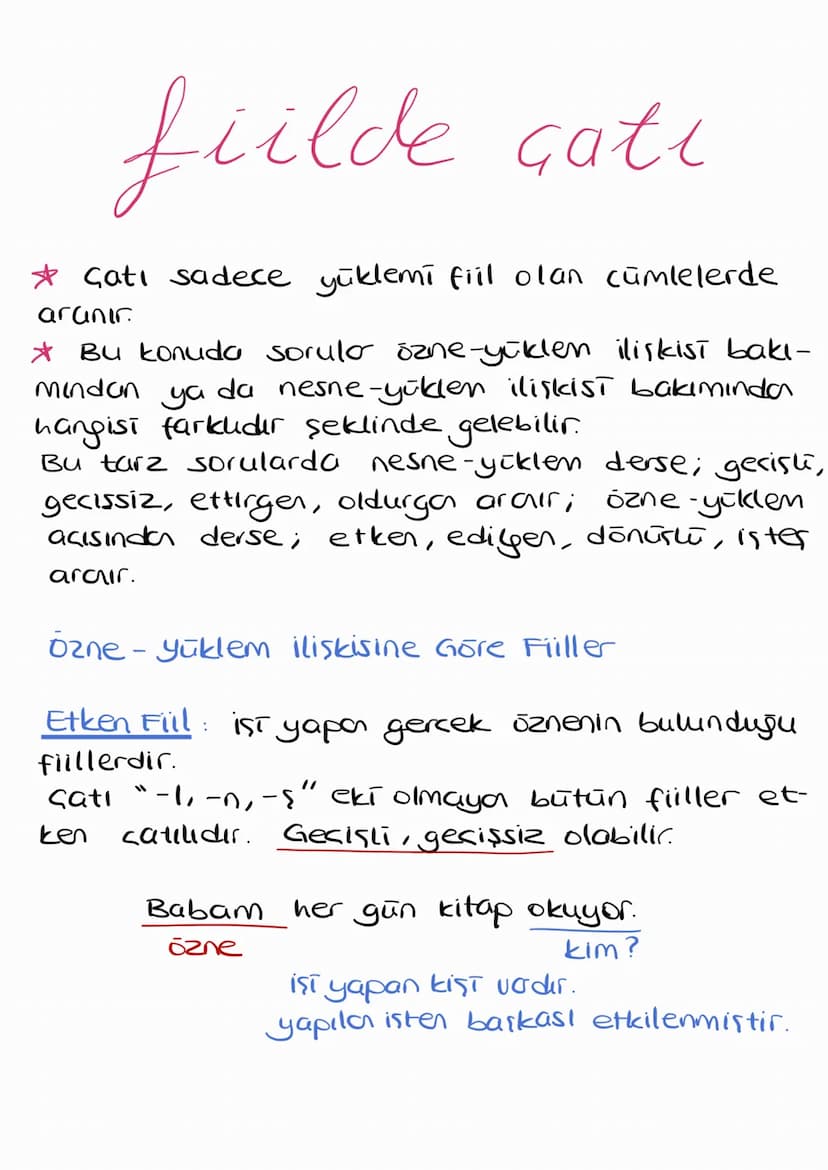 fiilde çatı
* Çatı sadece yüklemi fiil olan cümlelerde
aranır.
* Bu konuda sorular özne-yüklem ilişkisi bakı-
mından ya da nesne-yüklem ilişkisi bakımından
hangisi farklıdır şeklinde gelebilir.
Bu tarz sorularda nesne-yüklem derse; geçişli,
geçissiz, ettirgen, oldurgan aranır; özne-yüklem
açısından derse; etken, edilgen, dönüşlü, işteş
aranır.
Özne - Yüklem ilişkisine Göre Fiiller
Etken Fiil : işi yapan gerçek öznenin bulunduğu
fiillerdir.
Çatı "-l, -n, -ş" eki olmayan bütün fiiller et-
ken çatılıdır. Geçişli, geçişsiz olabilir.
Babam her gün kitap okuyor.
özne kim?
işi yapan kişi vardır.
yapılan işten başkası etkilenmiştir.